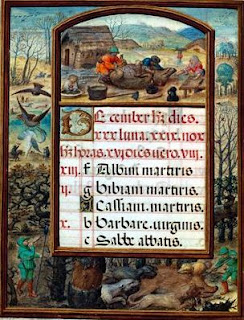 December hz dies.
xxx luna. xxix. nox
hz horas. xvi dies vero. viii.
xiii. f Albini martiris
ii. g Bibiani martiris.
A Cassiani. martiris.
x. b Barbare. virginis.
c Sabbe abbatis.